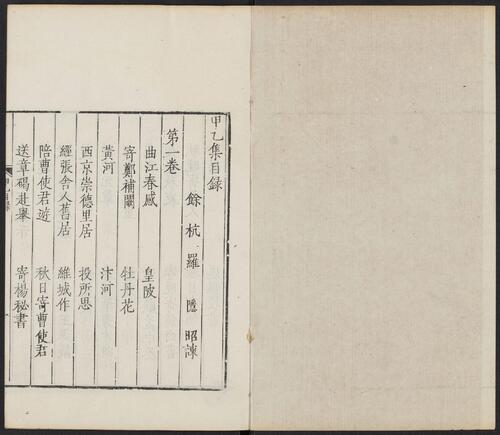 甲乙集目錄
餘杭羅隱昭諫
第一卷
曲江春感 皇陂
寄鄭補闕 牡丹花
黃河 汴河
西京崇德里居 投所思
經張舍人舊居 維城作
陪曹使君遊 秋日寄曹使君
送章碣赴舉 寄楊秘書